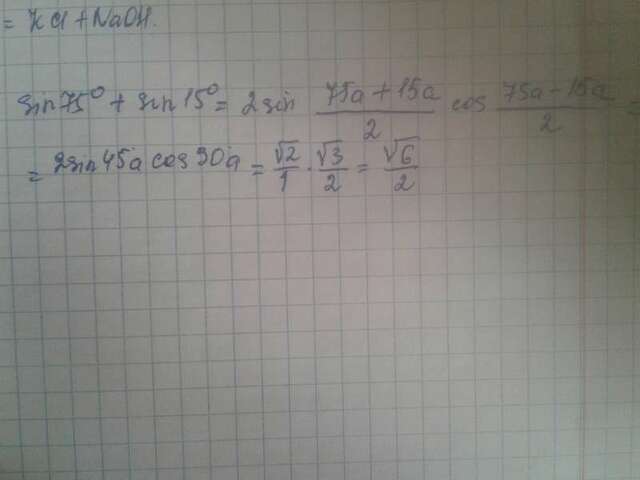 = KCl + NaOH.
sin 75° + sin 15° = 2 sin (75a + 15a)/2 cos (75a - 15a)/2 =
= 2sin 45a cos 30a = √2/1 · √3/2 = √6/2